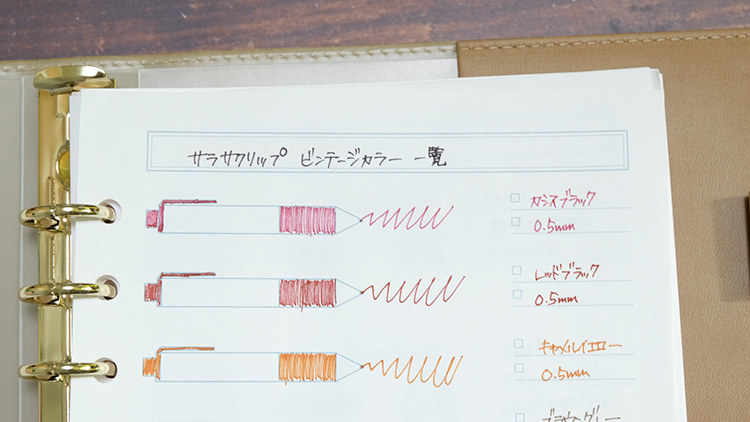 サラサクリップ ビンテージカラー 一覧
カシスブラック
0.5mm
レッドブラック
0.5mm
キャメルイエロー
0.5mm
ブラウングレー